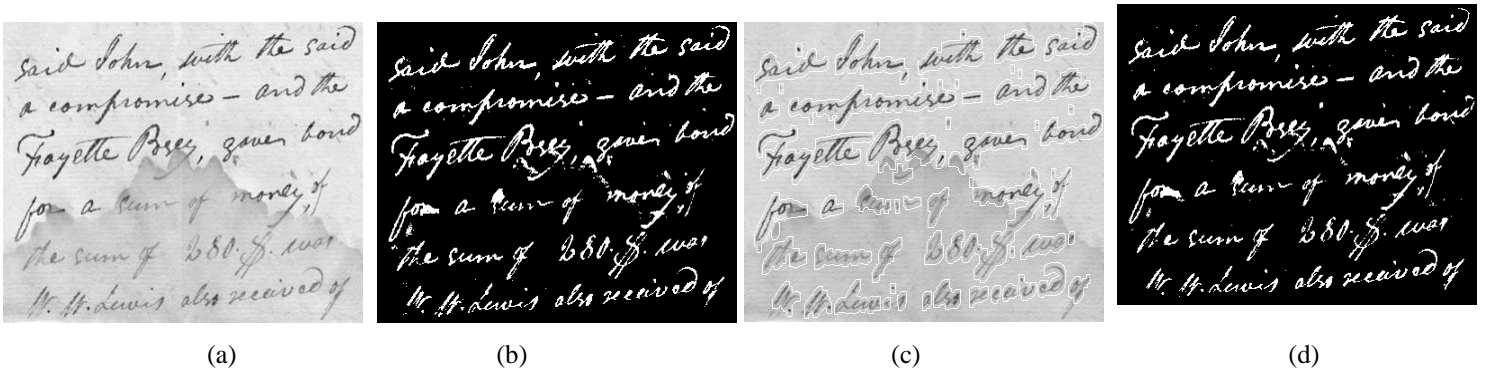 said John, with the said
a compromise — and the
Fayette Bsey, gaves bond
for a sum of money, of
the sum of 280.$. was
W. W. Lewis also received of
said John, with the said
a compromise — and the
Fayette Bsey, gaves bond
for a sum of money, of
the sum of 280.$. was
W. W. Lewis also received of
said John, with the said
a compromise — and the
Fayette Bsey, gaves bond
for a sum of money, of
the sum of 280.$. was
W. W. Lewis also received of
said John, with the said
a compromise — and the
Fayette Bsey, gaves bond
for a sum of money, of
the sum of 280.$. was
W. W. Lewis also received of
(a) (b) (c) (d)